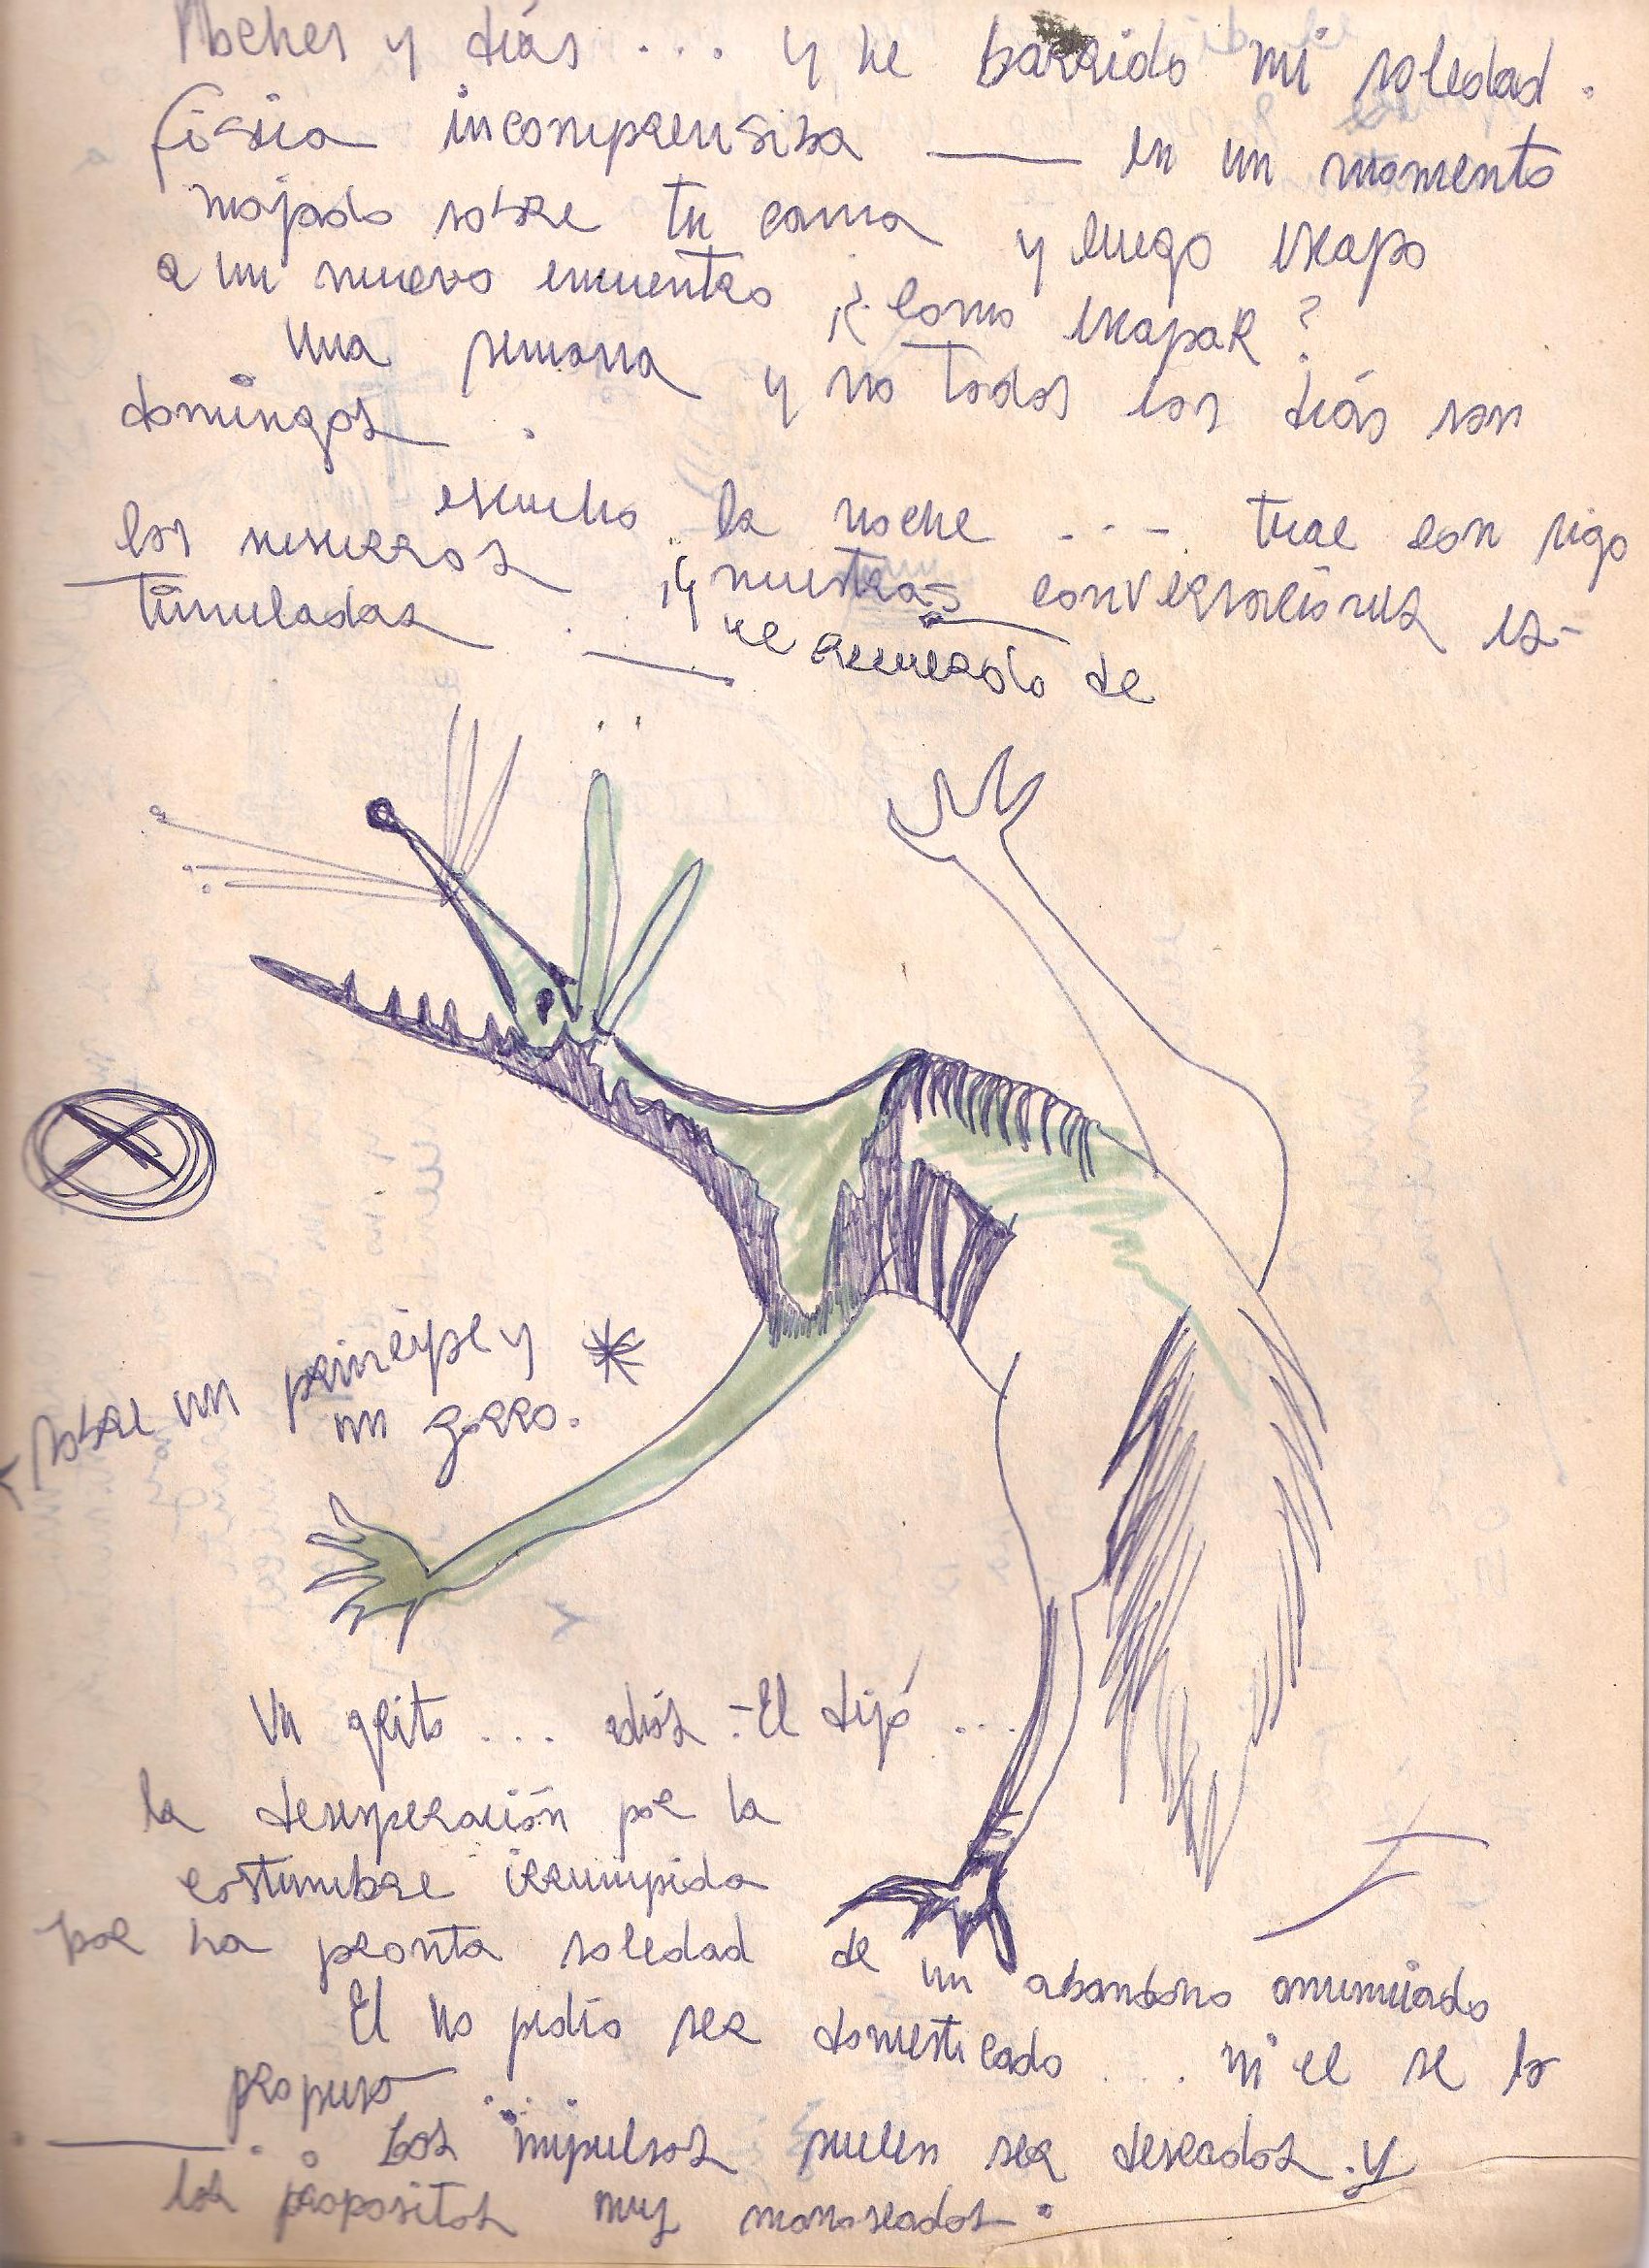 Noches y diás ... y he barrido mi soledad.
física incomprensiba —— en un momento
mojado sobre tu cama y luego escapo
a un nuevo encuentro ¡¿como escapar?
una semana y no todos los diás son
domingos.
escucho la noche ... trae con sigo
los susurros ¡y nuestras conversaciones es-
timuladas. —— he acuerdo de
sobre un principe y
un gorro.
Un grito ... adiós.- El dijó ...
la desesperación por la
costumbre irrumpida
por la pronta soledad de un abandono anunciado
El no pidio ser domesticado ... ni el se lo
propuso ...
——. . Los impulsos suelen ser deseados y
los propositos muy manoseados.